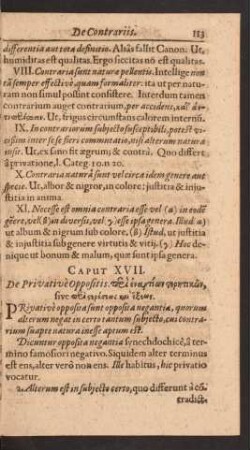 De Contrariis. 113
differentia aut tota definitio. Aliâs fallit Canon. Ut,
humiditas est qualitas. Ergo siccitas nō est qualitas.
VIII. Contraria sunt naturæ pellentis. Intellige non
tā semper effectivè, quam formaliter: ita ut per natu-
ram non simul possint consistere. Interdum tamen
contrarium auget contrarium, per accidens,
Ut, frigus circumstans calorem internū.
IX. In contrariorum subjecto susceptibili, potest vi-
cissim inter se se fieri commutatio, nisi alterum natura
insit. Ut, ex sano fit ægrum; & contrà. Quo differt
à privatione, l. Categ. 10. n 20.
X. Contraria naturâ sunt vel circa idem genere aut
specie. Ut, albor & nigror, in colore: justitia & in-
justitia in anima.
XI. Necesse est omnia contraria esse vel (α) in eodē
genere, vel (β) in diversis, vel γ) esse ipsa genera. Illud α)
ut album & nigrum sub colore. (β) Istud, ut justitia
& injustitia sub genere virtutis & vitij. (γ) Hoc de-
nique ut bonum & malum, quæ sunt ipsa genera.
CAPUT XVII.
De Privativè Oppositis.
sive
PRivativè opposita sunt opposita negantia, quorum
alterum negat in certo tantum subjecto, cui contra-
rium suapte natura inesse aptum est.
Dicuntur opposita negantia synechdochicè, à ter-
mino famosiori negativo. Siquidem alter terminus
est ens, alter verò non ens. Ille habitus, hic privatio
vocatur.
2. Alterum est in subjecto certo, quo differunt à cō-
tradict.